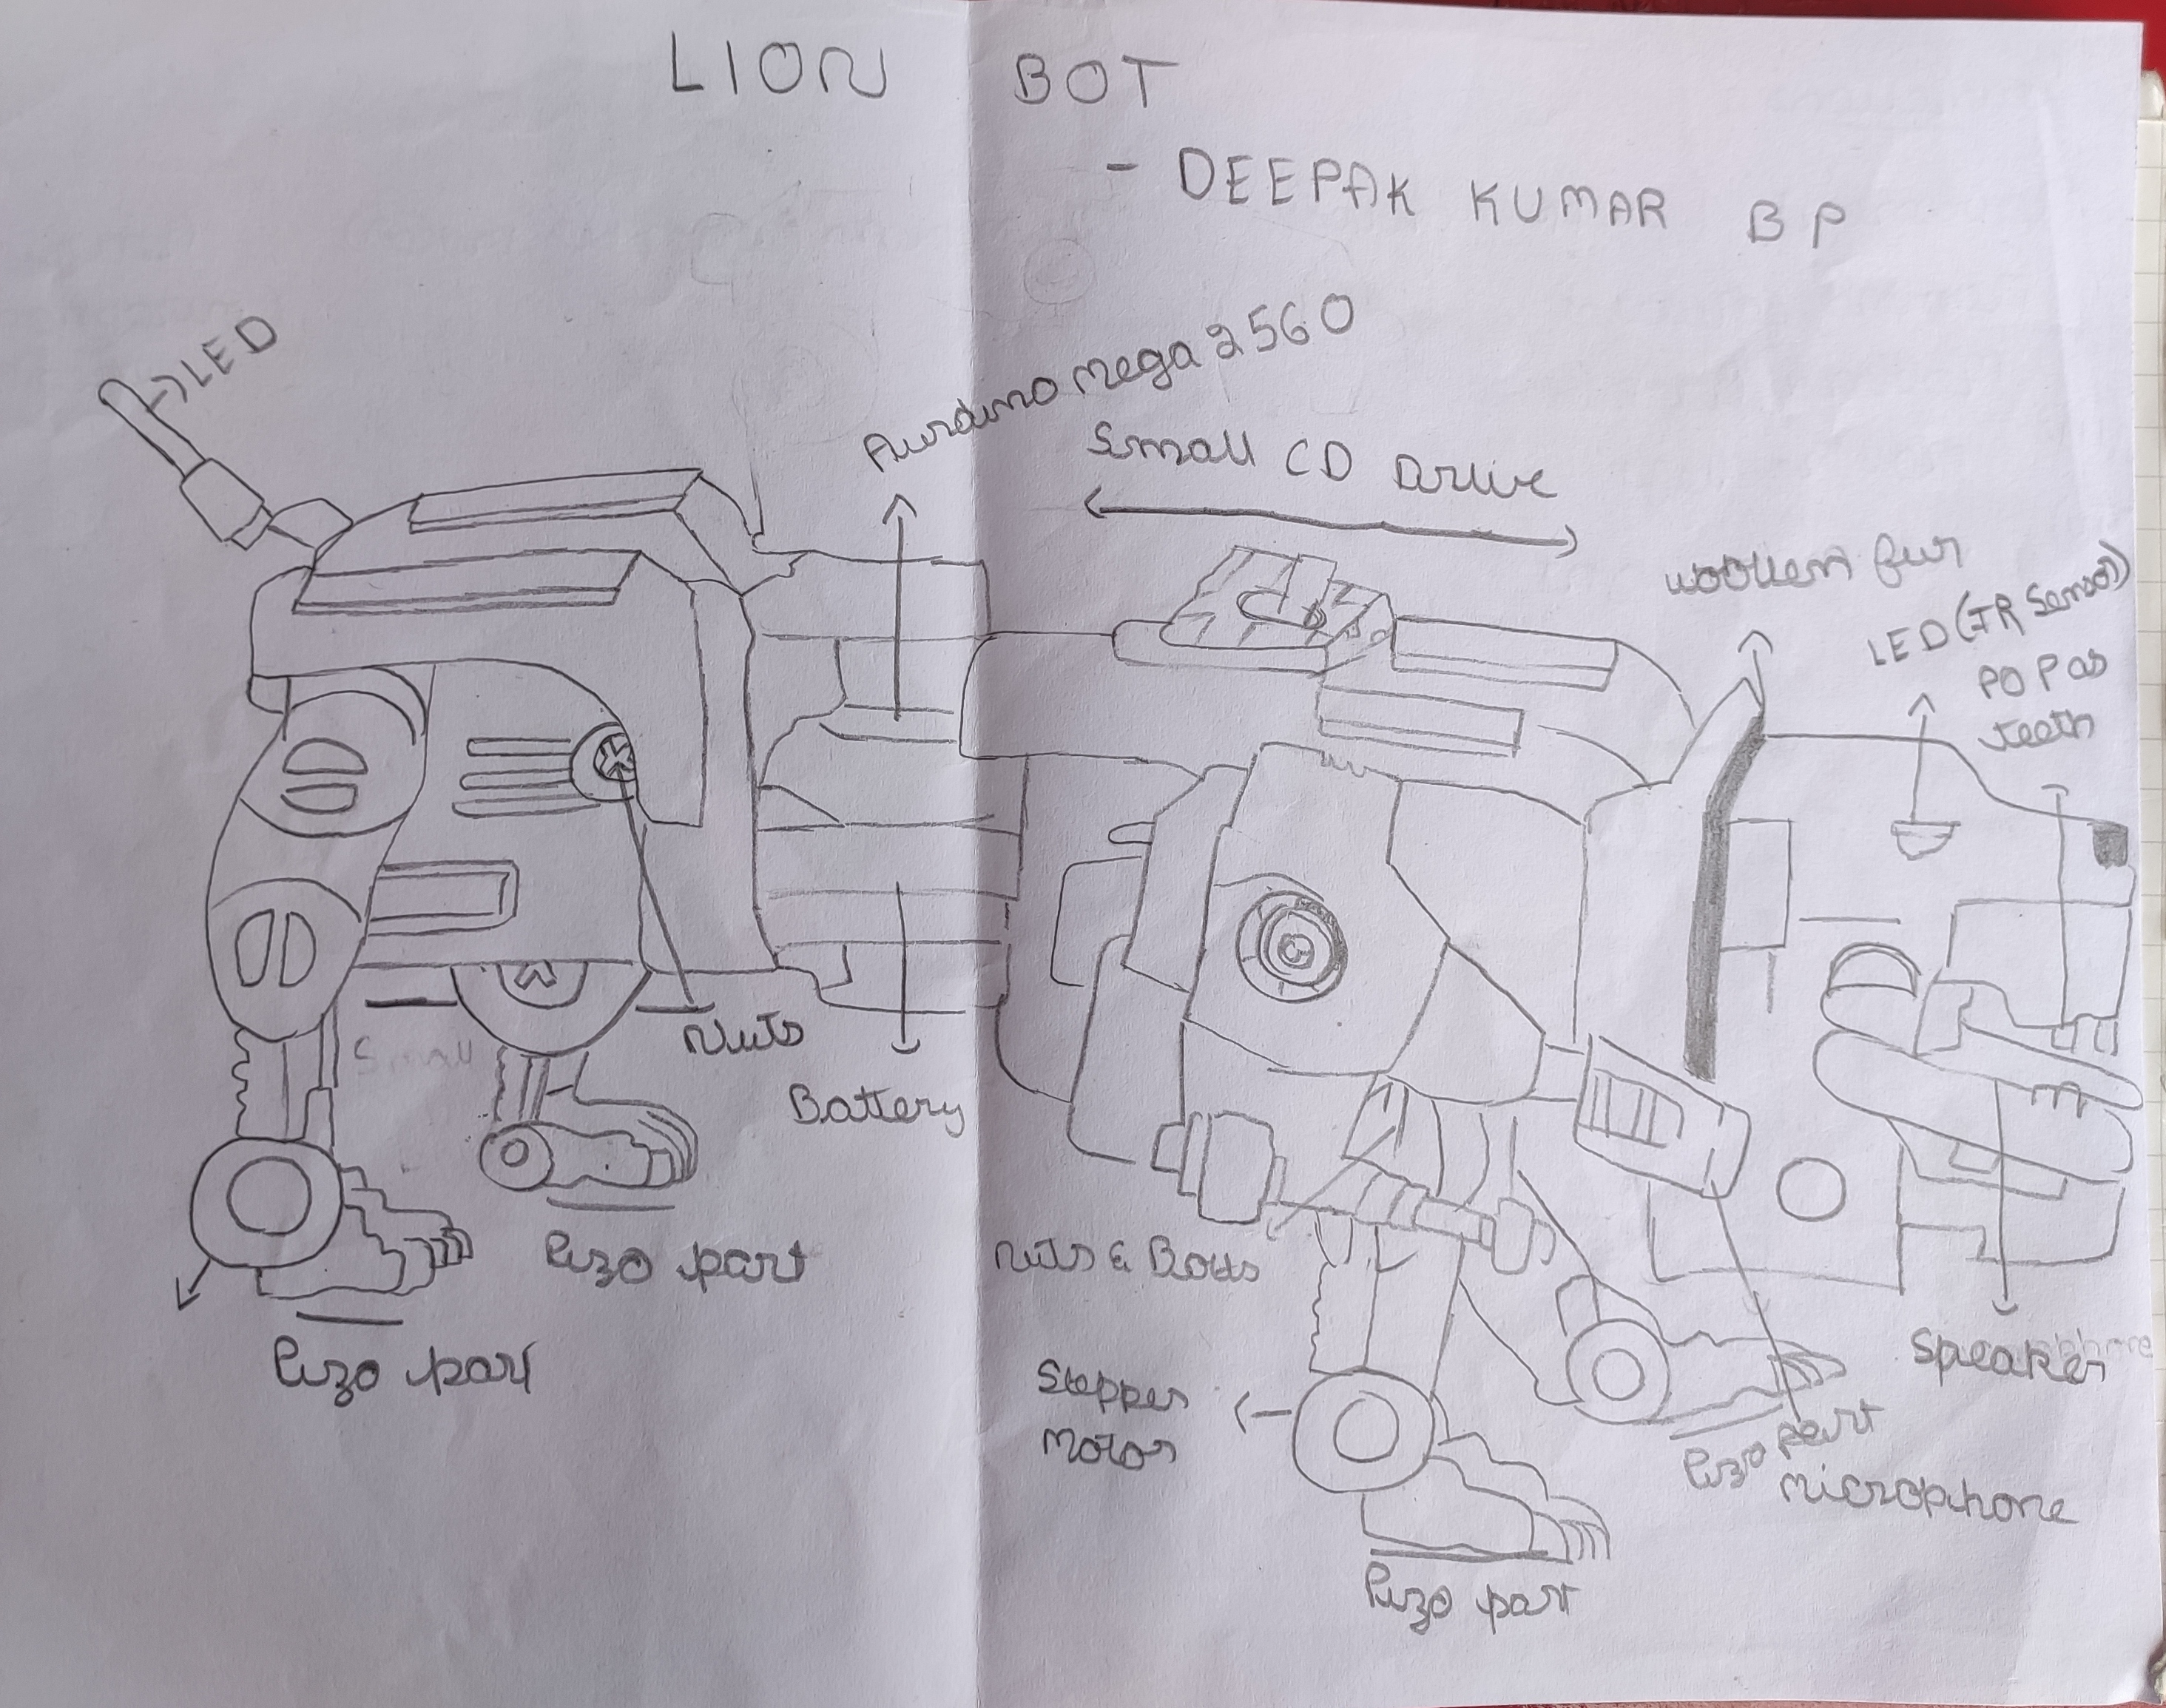 LION BOT
- DEEPAK KUMAR B P
LED
Aurdino Mega 2560
Small CD Drive
woollen fur
LED (IR Sensor)
POP as
teeth
Nuts
Small
Battery
Pizo part
Pizo part
Nuts & Bolts
Stepper
Motor
Speaker
Pizo part
Microphone
Pizo part